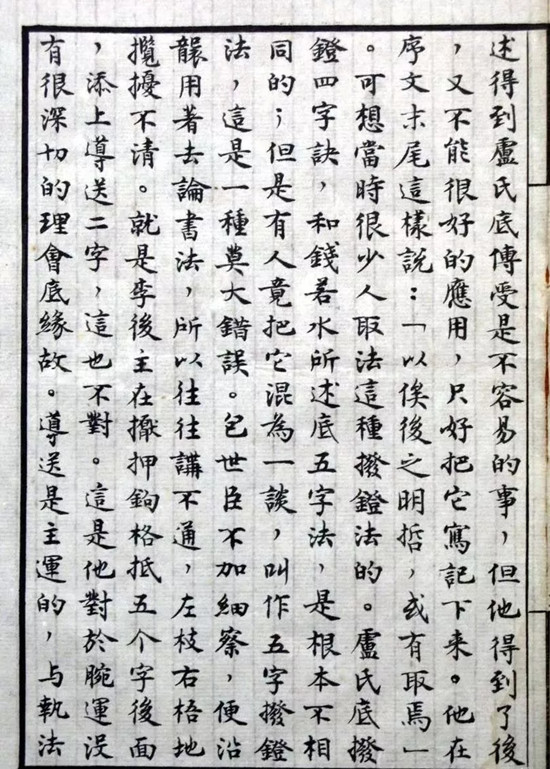 述得到盧氏底傳受是不容易的事，但他得到了後
，又不能很好的應用，只好把它寫記下来。他在
序文末尾這樣說：「以俟後之明哲，或有取焉」
。可想當時很少人取法這種撥鐙法的。盧氏底撥
鐙四字訣，和錢若水所述底五字法，是根本不相
同的；但是有人竟把它混為一談，叫作五字撥鐙
法，這是一種莫大錯誤。包世臣不加細察，便沿
襲用著去論書法，所以往往講不通，左枝右梧地
攬擾不清。就是李後主在擫押鉤格抵五个字後面
，添上導送二字，這也不對。這是他對於腕運沒
有很深切的理會底緣故。導送是主運的，与執法